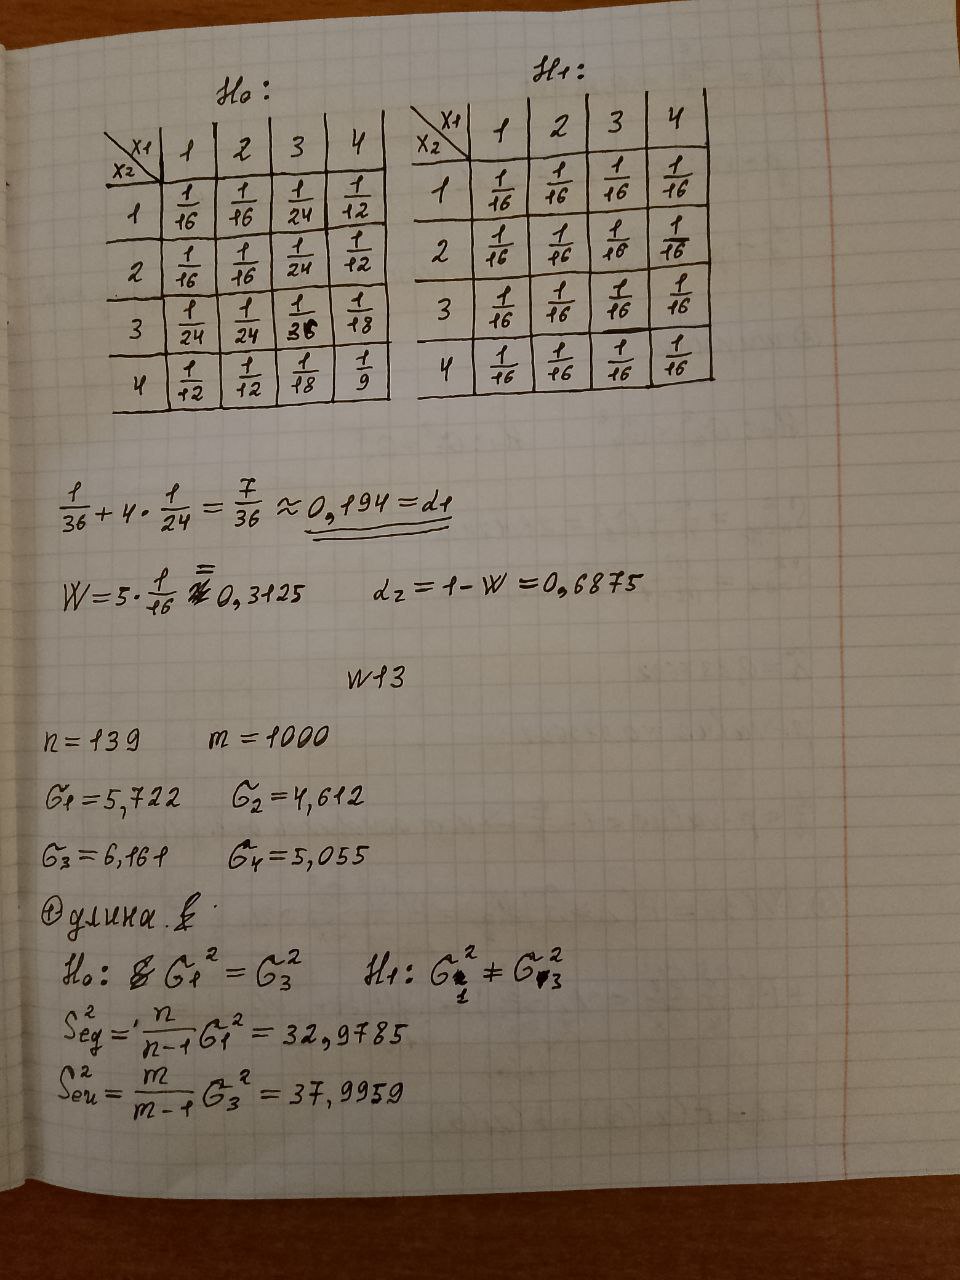 H₀: H₁:
X₂ \ X₁ | 1 | 2 | 3 | 4
1 | 1/16 | 1/16 | 1/24 | 1/12
2 | 1/16 | 1/16 | 1/24 | 1/12
3 | 1/24 | 1/24 | 1/36 | 1/18
4 | 1/12 | 1/12 | 1/18 | 1/9
X₂ \ X₁ | 1 | 2 | 3 | 4
1 | 1/16 | 1/16 | 1/16 | 1/16
2 | 1/16 | 1/16 | 1/16 | 1/16
3 | 1/16 | 1/16 | 1/16 | 1/16
4 | 1/16 | 1/16 | 1/16 | 1/16
1/36 + 4 · 1/24 = 7/36 ≈ 0,194 = α₁
W = 5 · 1/16 = 0,3125 α₂ = 1 - W = 0,6875
№13
n = 139 m = 1000
σ₁ = 5,722 σ₂ = 4,612
σ₃ = 6,161 σ₄ = 5,055
① длина
H₀: σ₁² = σ₃² H₁: σ₁² ≠ σ₃²
S²ед = n/(n-1) σ₁² = 32,9785
S²ен = m/(m-1) σ₃² = 37,9959